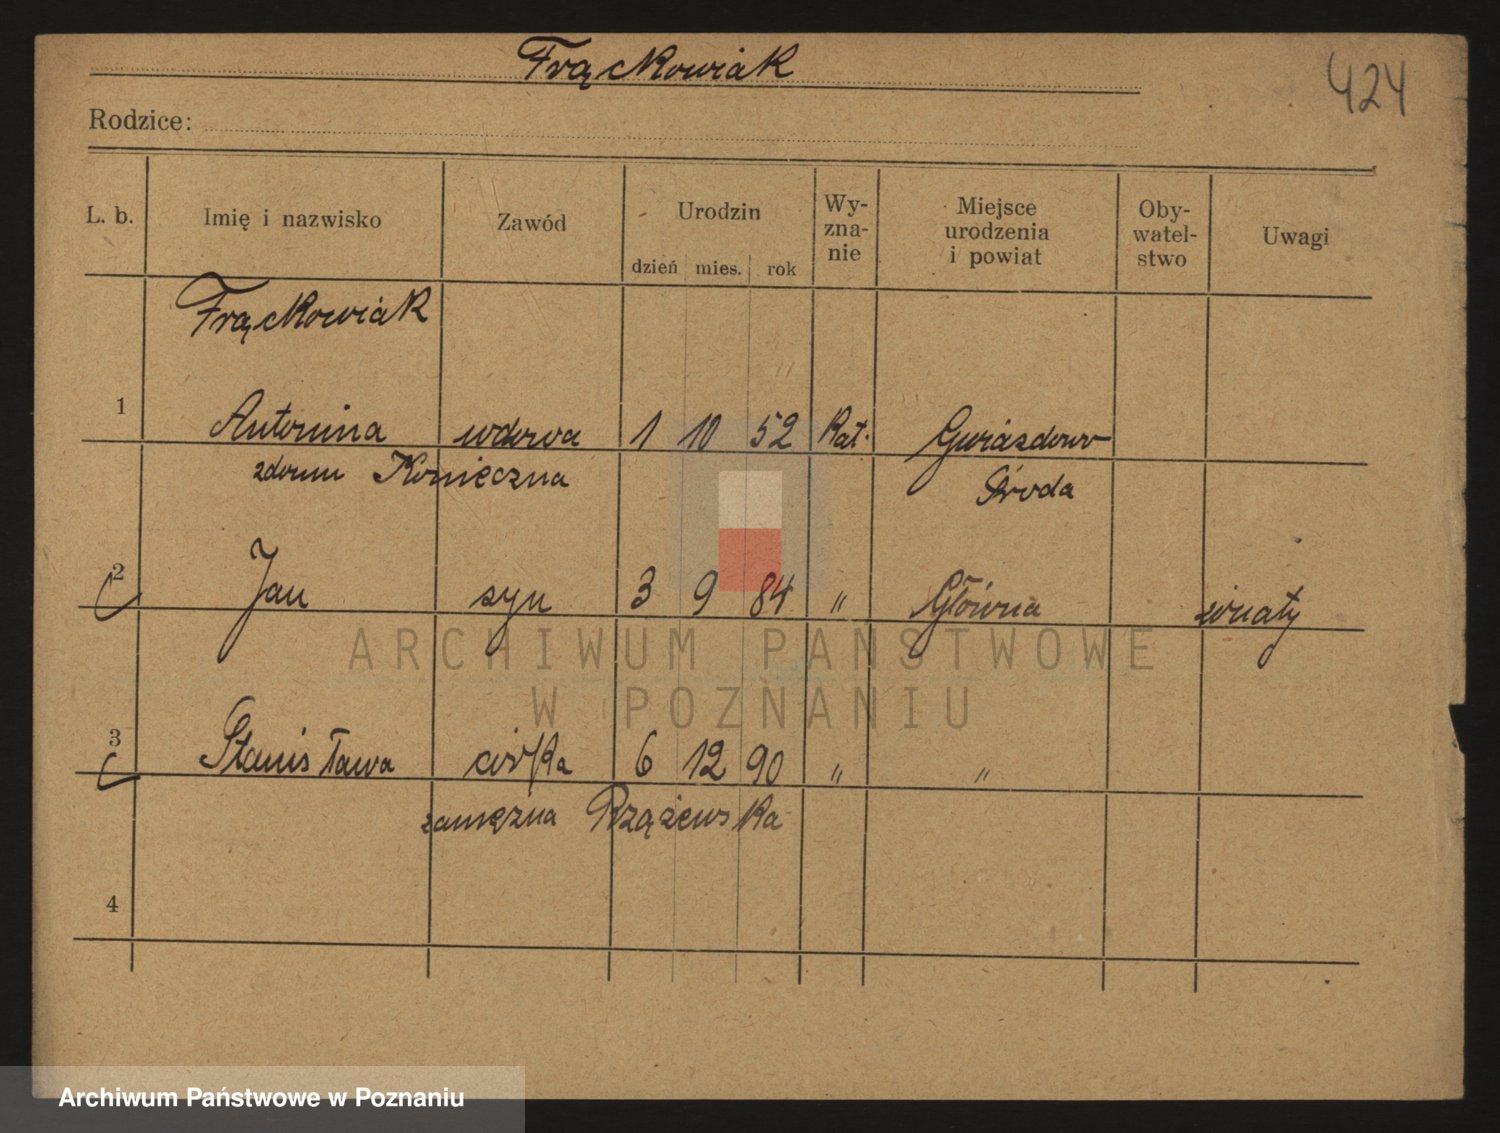 Frąckowiak
424
Rodzice:
L. b. Imię i nazwisko Zawód Urodzin Wy-zna-nie Miejsce urodzenia i powiat Oby-watel-stwo Uwagi
dzień mies. rok
Frąckowiak
1 Antonina wdowa 1 10 52 Kat. Gwiazdowo
zdomu Konieczna Środa
2 Jan syn 3 9 84 " Główna
3 Stanisława córka 6 12 90 " "
zamężna Rządzewska
4
ARCHIWUM PAŃSTWOWE
W POZNANIU
Archiwum Państwowe w Poznaniu